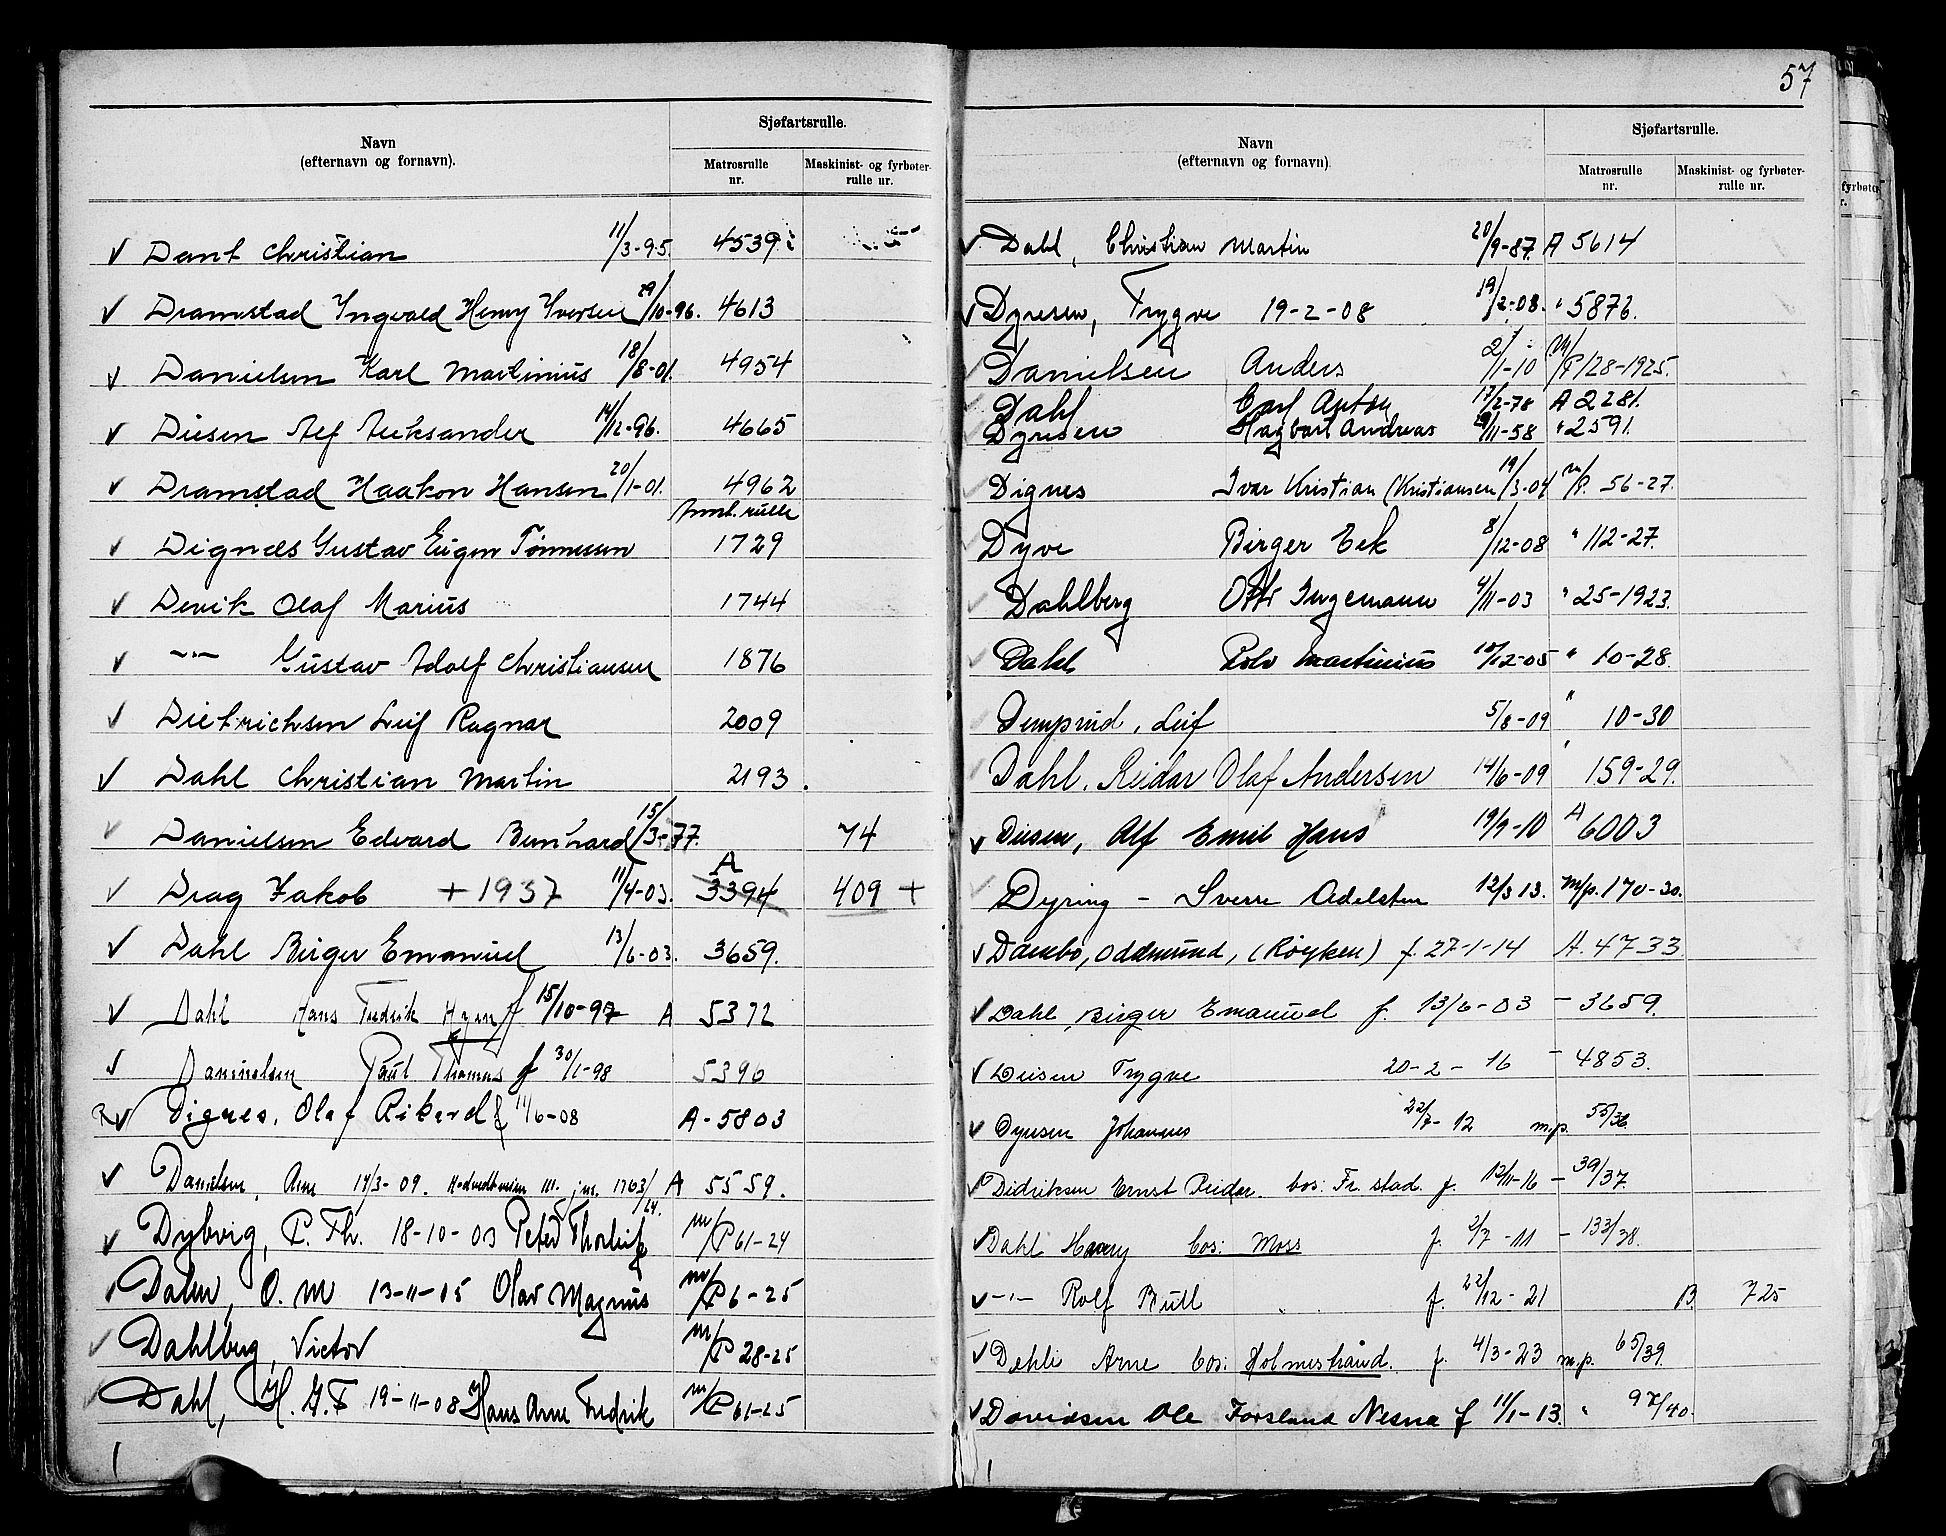 Navn
(efternavn og fornavn).
Sjøfartsrulle.
Matrosrulle nr.
Maskinist- og fyrbøter-rulle nr.
√ Dant Christian 11/3-95. 4539
√ Dramstad Ingvald Henry Iversen 29/10-96. 4613
√ Danielsen Karl Martinius 18/8-01. 4954
√ Diesen Alf Aleksander 14/12-96. 4665
√ Dramstad Haakon Hansen 20/1-01. 4962
Annt. rulle
√ Dignæs Gustav Eugen Tønnessen 1729
√ Devik Olaf Marius 1744
√ -"- Gustav Adolf Christiansen 1876
√ Dietrichsen Leif Ragnar 2009
√ Dahl Christian Martin 2193.
√ Danielsen Edvard Bernhard 15/3-77. 74
√ Drag Jakob + 1937 11/4-03. A 3394 409 +
√ Dahl Birger Emanuel 13/6-03. 3659.
√ Dahl Hans Fredrik Hjem f 15/10-97 A 5372
√ Danielsen Paul Thomas f 30/1-98 5396
√ Dignes, Olaf Rikard f 11/6-08 A-5803
√ Danielsen, Arne 14/3-09. jnr. 1763/24. A 5559.
√ Dybvig, P. Th. 18-10-03 Peter Thorleif m/P 61-24
√ Dahn, O. M 13-11-05 Olav Magnus m/P 6-25
√ Dahlberg, Victor m/P 28-25
√ Dahl, H. G. F 19-11-08 Hans Arne Fredrik m/P 61-25
57
Navn
(efternavn og fornavn)
Sjøfartsrulle.
Matrosrulle nr.
Maskinist- og fyrbøter-rulle nr.
√ Dahl, Christian Martin 20/9-87. A 5614
√ Dyresen, Trygve 19-2-08 19/2-08. " 5876.
√ Danielsen Anders 2/1-10 M/P 128-1925.
√ Dahl Carl Anton 17/2-78 A 2281.
Dyresen Hagbart Andreas /11-58 " 2591.
√ Dignes Ivar Kristian (Kristiansen 19/3-04 m/P. 56-27.
√ Dyve Birger Eek 8/12-08 " 112-27.
√ Dahlberg Otto Ingemann 4/11-03 " 25-1923.
√ Dahl Rolv Martinius 10/12-05 " 10-28.
√ Demprud, Leif 5/8-09 " 10-30
√ Dahl, Reidar Olaf Andersen 14/6-09 " 159-29.
√ Diesen, Alf Emil Hans 19/9-10 A 6003
√ Dyring - Sverre Adelsten 12/3 13. M/p. 170-30.
√ Dambo, Oddmund, (Røyken) f. 27-1-14 A. 4733
√ Dahl, Birger Emanuel f. 13/6-03 - 3659.
√ Deisen Trygve 20-2-16 - 4853.
√ Dyresen Johannes 22/7-12 m.p. 55/36
√ Didriksen Ernst Reidar. bos: Fr. stad. f. 12/11-16 - 39/37.
√ Dahl Harry bos: Moss f. 2/7-11 - 133/38.
√ -"- Rolf Bull f. 22/12-21 B 725
√ Dehli Arne bos: Holmestrand. f. 4/3-23 m.p. 65/39.
√ Davidsen Ole Forsland Nesna f 11/1-13. " 97/40.